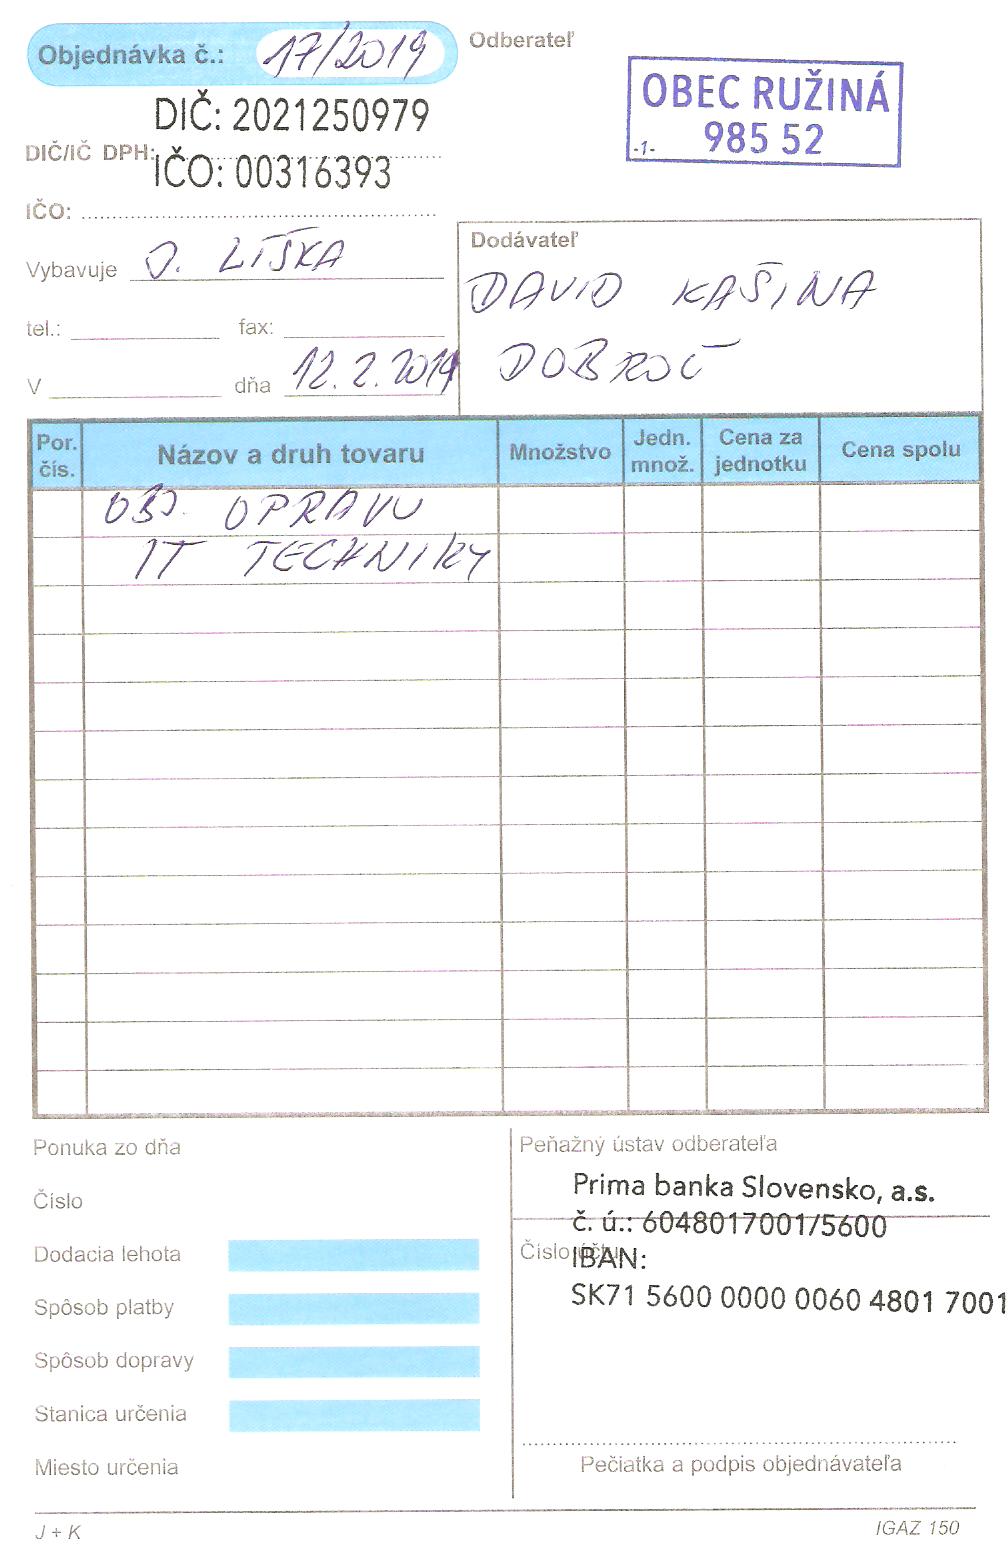 Objednávka č.: 17/2019
Odberateľ
OBEC RUŽINÁ
985 52
-1-
DIČ: 2021250979
DIČ/IČ DPH:
IČO: 00316393
IČO:
Vybavuje O. LÍŠKA
tel.: fax:
V dňa 12.2.2019
Dodávateľ
DAVID KAŠINA
DOBROČ
Por. čís. Názov a druh tovaru Množstvo Jedn. množ. Cena za jednotku Cena spolu
OBJ. OPRAVU
IT TECHNIKY
Ponuka zo dňa
Číslo
Dodacia lehota
Spôsob platby
Spôsob dopravy
Stanica určenia
Miesto určenia
Peňažný ústav odberateľa
Prima banka Slovensko, a.s.
č. ú.: 6048017001/5600
Číslo účtu
IBAN:
SK71 5600 0000 0060 4801 7001
Pečiatka a podpis objednávateľa
J + K
IGAZ 150